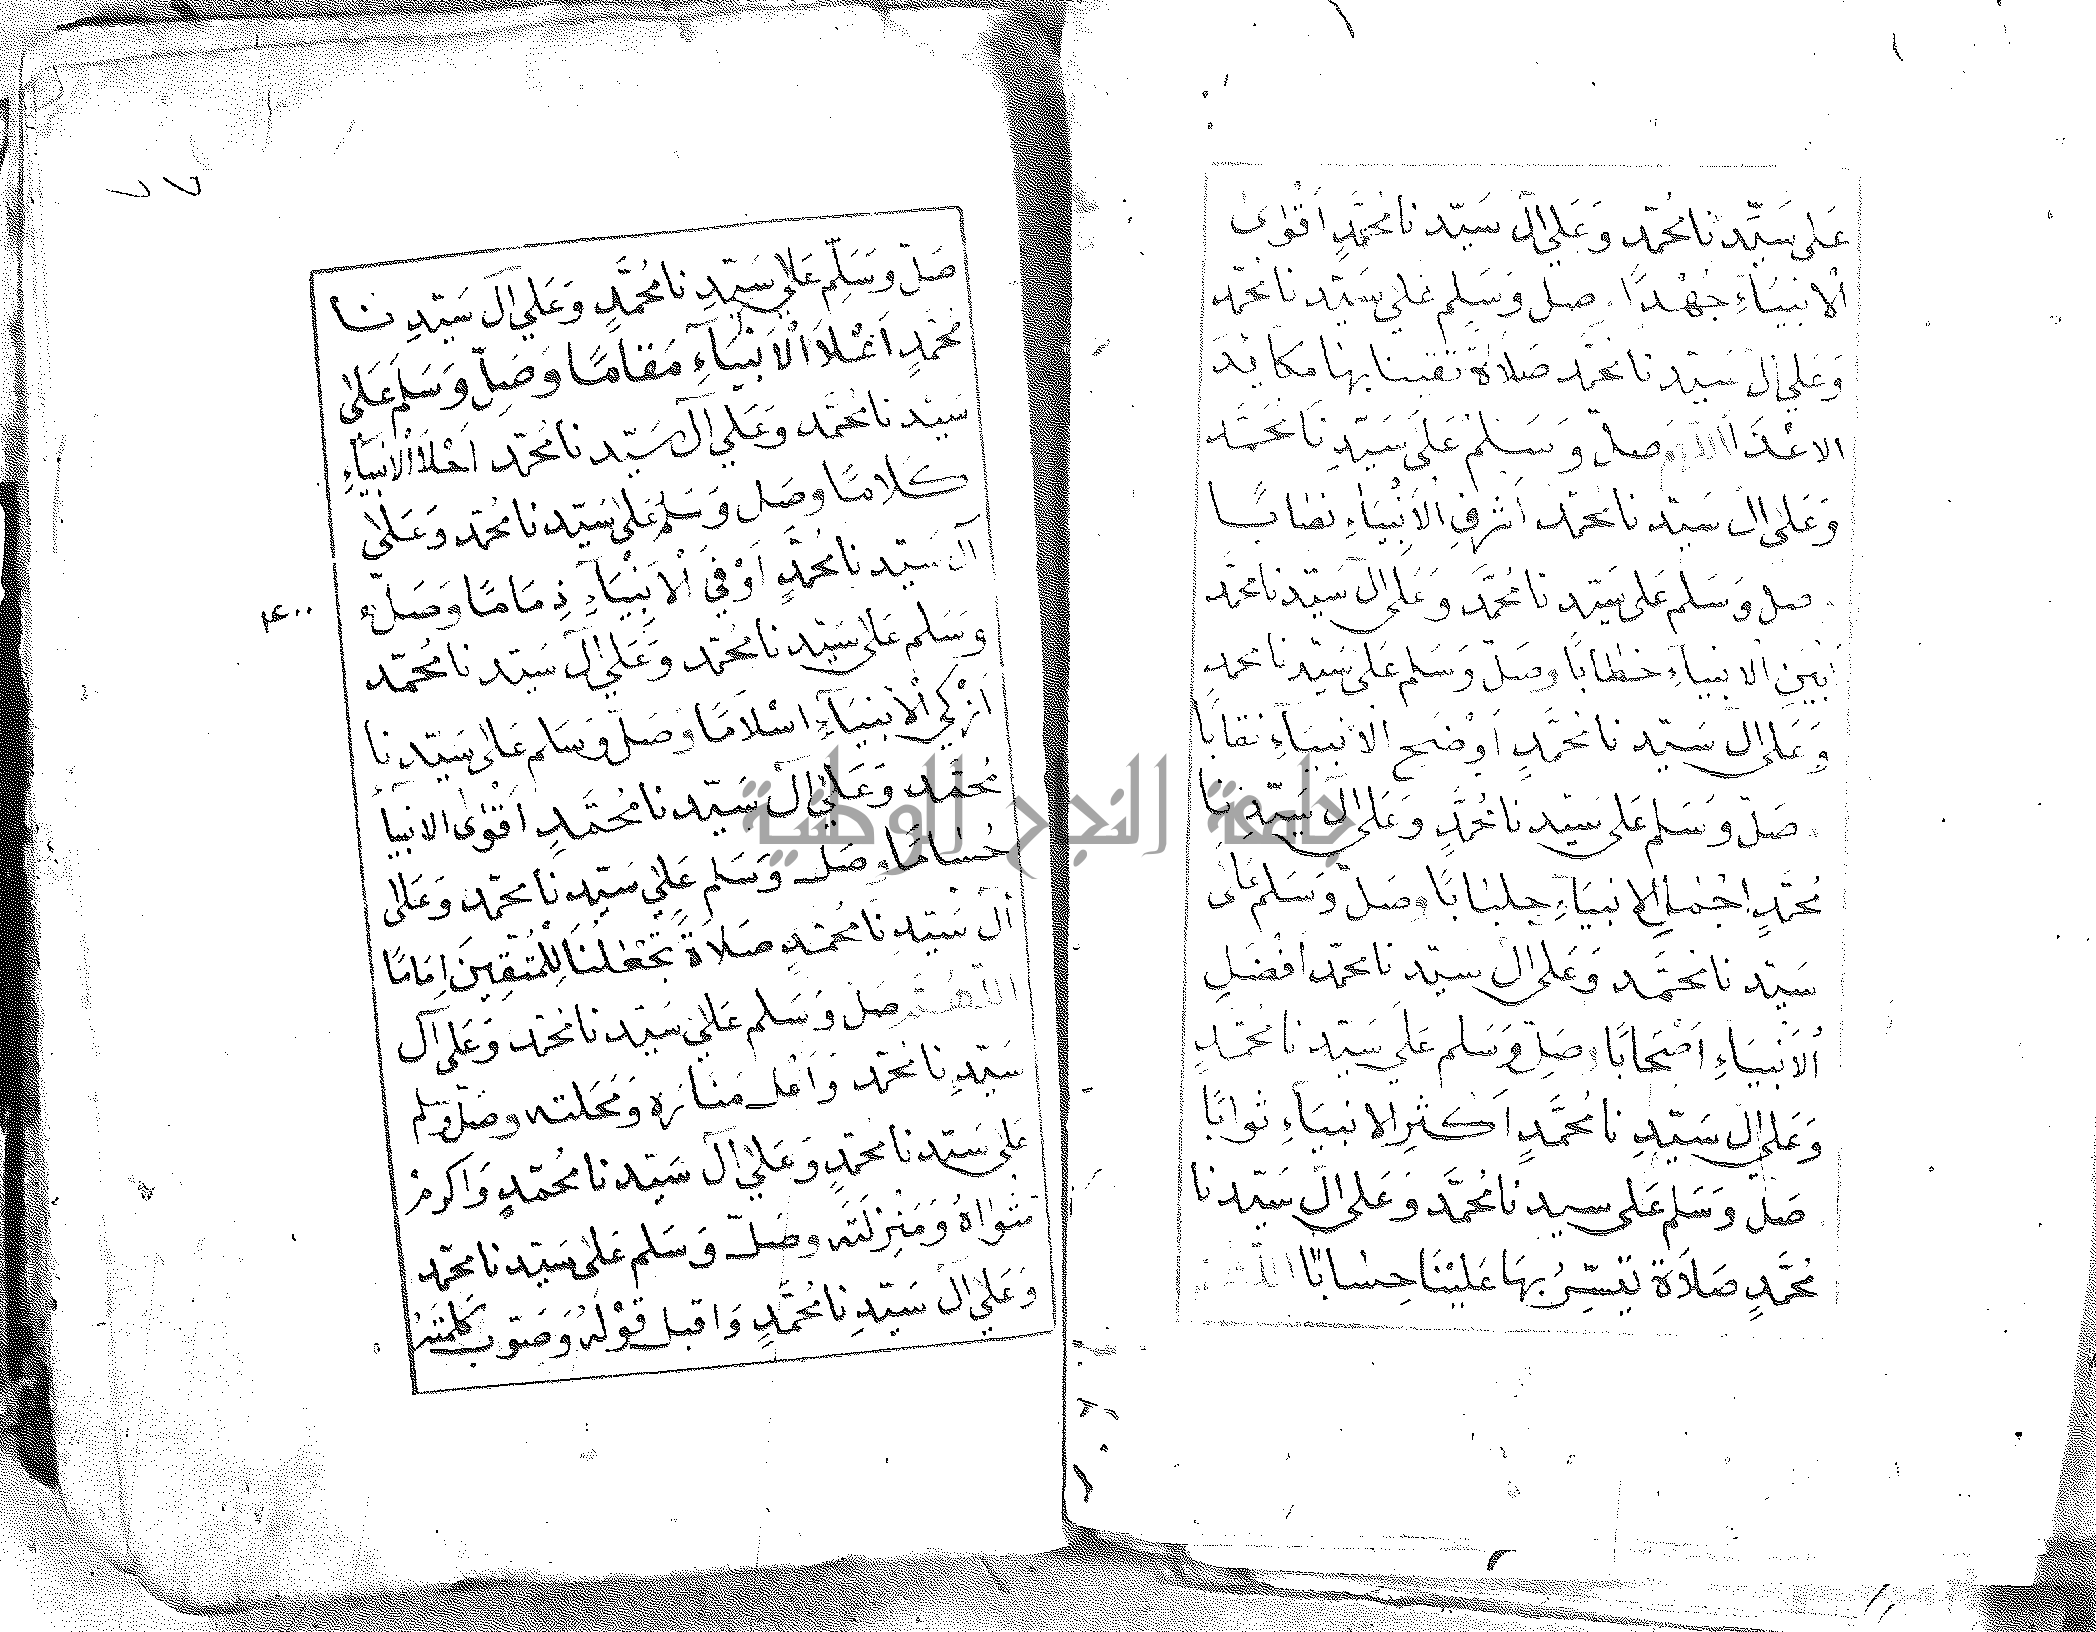 عَلى سَيّدِنا مُحَمّد وَعَلى اٰل سَيّدنا مُحَمَّدٍ اَقْوٰى
الانبيَاءِ جُهْدًا صل وَسَلم عَلى سَيّدنا محمّد
وَعَلى اٰل سَيّدنا محمَّد صَلاةً تقينا بها مكايد
الاعْدَا اللهم صل وَسَلمْ عَلى سَيّدِنا محَمَّد
وَعَلى اٰل سَيّدنا محمّد اشرفِ الاَنْبيَاءِ نصَابًا
صل وَسَلم عَلى سَيّدنا مُحمَّد وَعَلى اٰل سَيّدنا محمَّد
اَبْيَنِ الانبيَآءِ خطابًا وصَلّ وَسَلم عَلى سَيّدنا محمدٍ
وَعَلى اٰل سَيّدنا محَمَّدٍ اَوْضح الانبيَآءِ نقابًا
صَلّ وَسَلم عَلى سَيّدنا مُحمَّدٍ وَعَلى اٰل سَيّدِنا
مُحمَّدٍ اجْمَل الانبيَآءِ جلبَابًا وصَلّ وَسَلم عَلى
سَيّدنا محَمَّد وَعَلى اٰل سيّدنا محمّد افْضَلِ
الاَنْبيَاءِ اَصْحَابًا وصَلّ وَسَلم عَلى سَيّدنا مُحمَّدٍ
وَعَلى اٰل سَيّدِنا مُحَمَّدٍ اَكثرِ الانبيَآءِ ثوابًا
صَلّ وَسَلم عَلى سيدنا مُحَمَّد وَعَلى اٰل سَيّدنا
مُحَمَّدٍ صَلاَةً تيَسِّرُ بهَا عَليْنَا حِسَابًا اللّهُمَّ
٧٧
صَلّ وَسَلِّم عَلى سَيّدِنا مُحَمَّدٍ وَعَلى اٰل سَيّدِنا
مُحَمّدٍ اَعْلاَ الْاَنبْيَآءِ مَقامًا وَصَلِّ وَسَلمْ عَلىٰ
سَيّدنا مُحَمَّد وَعَلى اٰل سَيّدنا مُحَمّد اَحْلاَ الْانبيَآءِ
كَلامًا وصَل وَسَلم عَلىٰ سَيّدنا مُحَمّد وَعَلىٰ
اٰل سَيّدنا مُحَمَّدٍ اَوْفَى الْاَنْبيَآءِ ذِمَامًا وَصَلّ
١٤٠٠
وَسَلم عَلىٰ سَيّدنا مُحَمّد وَعَلى اٰل سَيّدنا مُحمّد
اَزْكى الْانبيَآءِ اسْلامًا وَصَلّ وَسَلم عَلىٰ سَيّدِنا
مُحَمَّد وَعَلىٰ اٰل سَيّدنا مُحَمَّدٍ اَقْوٰى الانبيَآ
حُسَامًا وصَل وَسَلم عَلىٰ سَيّدِنا محمّد وَعَلىٰ
اٰل سَيّدنا مُحَمّدٍ صَلاَةً تَجْعَلُنَا لِلْمُتَّقِينَ اِمَامًا
اللّهُمَّ صَلّ وَسَلم عَلىٰ سَيّدنا مُحَمّد وَعَلى اٰل
سَيّدِنا محَمّد وَاَعْل مَنَارَه وَمَحَلته وصَلّ وسَلم
عَلى سَيّدنا محمّدٍ وَعَلىٰ اٰل سَيّدنا مُحَمّدٍ وَاكرمْ
مَثواهُ وَمَنْزِلَته وصَلّ وَسَلم عَلىٰ سَيّدنا محمّد
وَعَلىٰ اٰل سَيّدِنا مُحَمَّدٍ وَاقبل قوْلَهُ وَصَوّب كَلمَتهُ
جامعة النجاح الوطنية